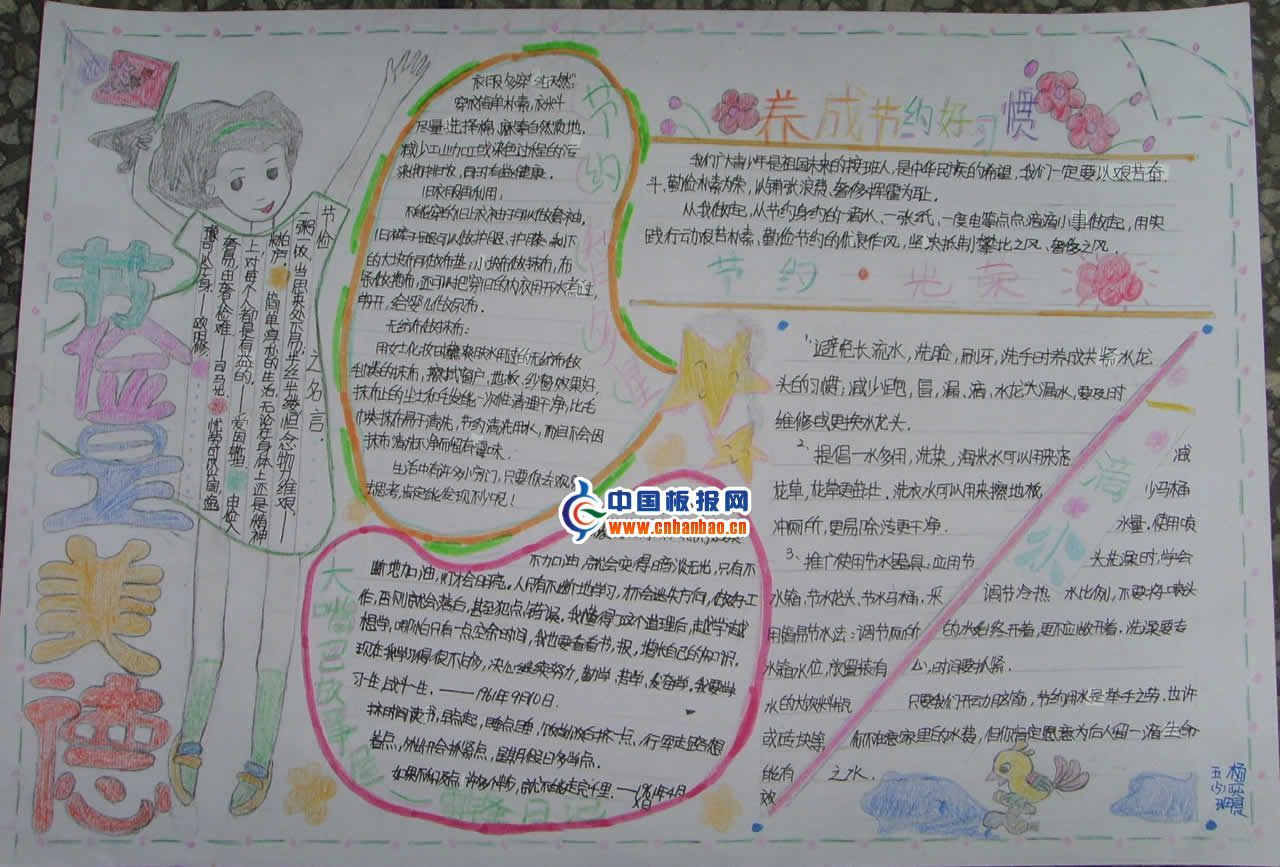 节俭是美德
节俭之名言
一粥一饭,当思来处不易;半丝半缕,恒念物力维艰——
朱柏庐
简单淳朴的生活,无论在身体上还是精神
上,对每个人都是有益的。——爱因斯坦
由俭入
奢易,由奢入俭难——司马光
忧劳可以兴国,逸
豫可以亡身——欧阳修
节约指南
衣服多穿“纯天然”
穿衣简单朴素,
尽量选择棉、麻等自然质地,
减少工业加工或染色过程的污
染排放,
旧衣服再利用,
的大块布可做布垫,小块布做抹布,布
条做拖布,还可以把穿旧的内衣用开水煮过,
剪开,给婴儿做尿布。
无纺布做抹布:
刮掉的抹布,擦拭窗户、地板、纱窗效果好,
抹布上的尘土和毛发能一次性清理干净,比毛
巾类抹布易于清洗,节约清洗用水,而且不会因
抹布清洗不净而留有异味。
生活中有许多小窍门,只要你去
思考,肯定能发现不少呢!
养成节约好习惯
我们广大青少年是祖国未来的接班人,是中华民族的希望,我们一定要以艰苦奋
斗,勤俭朴素为荣,以铺张浪费、奢侈挥霍为耻。
从我做起,从节约身边的一滴水、一张纸,一度电等点点滴滴小事做起,用实
践行动艰苦朴素、勤俭节约的优良作风,坚决抵制攀比之风、奢侈之风。
节约·光荣
1、避免长流水,洗脸,刷牙,洗手时养成关紧水龙
头的习惯;减少跑,冒,漏,滴,水龙头漏水,要及时
维修或更换水龙头.
2、提倡一水多用,洗菜,淘米水可以用来浇
花草,花草更茁壮,洗衣水可以用来擦地板,
冲厕所,更易除污更干净.
3、推广使用节水器具,应用节
水箱,节水龙头,节水马桶,采
用简易节水法:调节厕所
水箱水位,放置装有
水的大饮料瓶
或砖块等
能有
效
滴水
减
少马桶
水量.使用喷
头洗澡时,学会
调节冷热水比例,不要将喷头
的水始终开着,更不应敞开着.洗澡要专
心,时间要抓紧.
只要我们开动脑筋,节约用水是举手之劳.也许
你不在意家里的水费,但你肯定愿意为后人留一滴生命
之水.
大嘴巴故事屋
不加油,就会变得暗淡无光,只有不
断地加油,灯才会明亮。人只有不断地学习,才会不迷失方向,做好工
作,否则就会落后,甚至犯点错误。我懂得了这个道理后,越学越
想学,哪怕只有一点空余时间,我也要看看书、报,增长自己的知识。
现在我学习得很不够,决心继续努力,勤学,苦学,发奋学。我要学
习一生,战斗一生。——1961年9月10日.
抓时间读书,早点起,晚点睡,饭前饭后挤一点,行军走路想
着点,外出开会抓紧点,星期假日多学点。
一雷锋日记
中国板报网
www.cnbanbao.cn